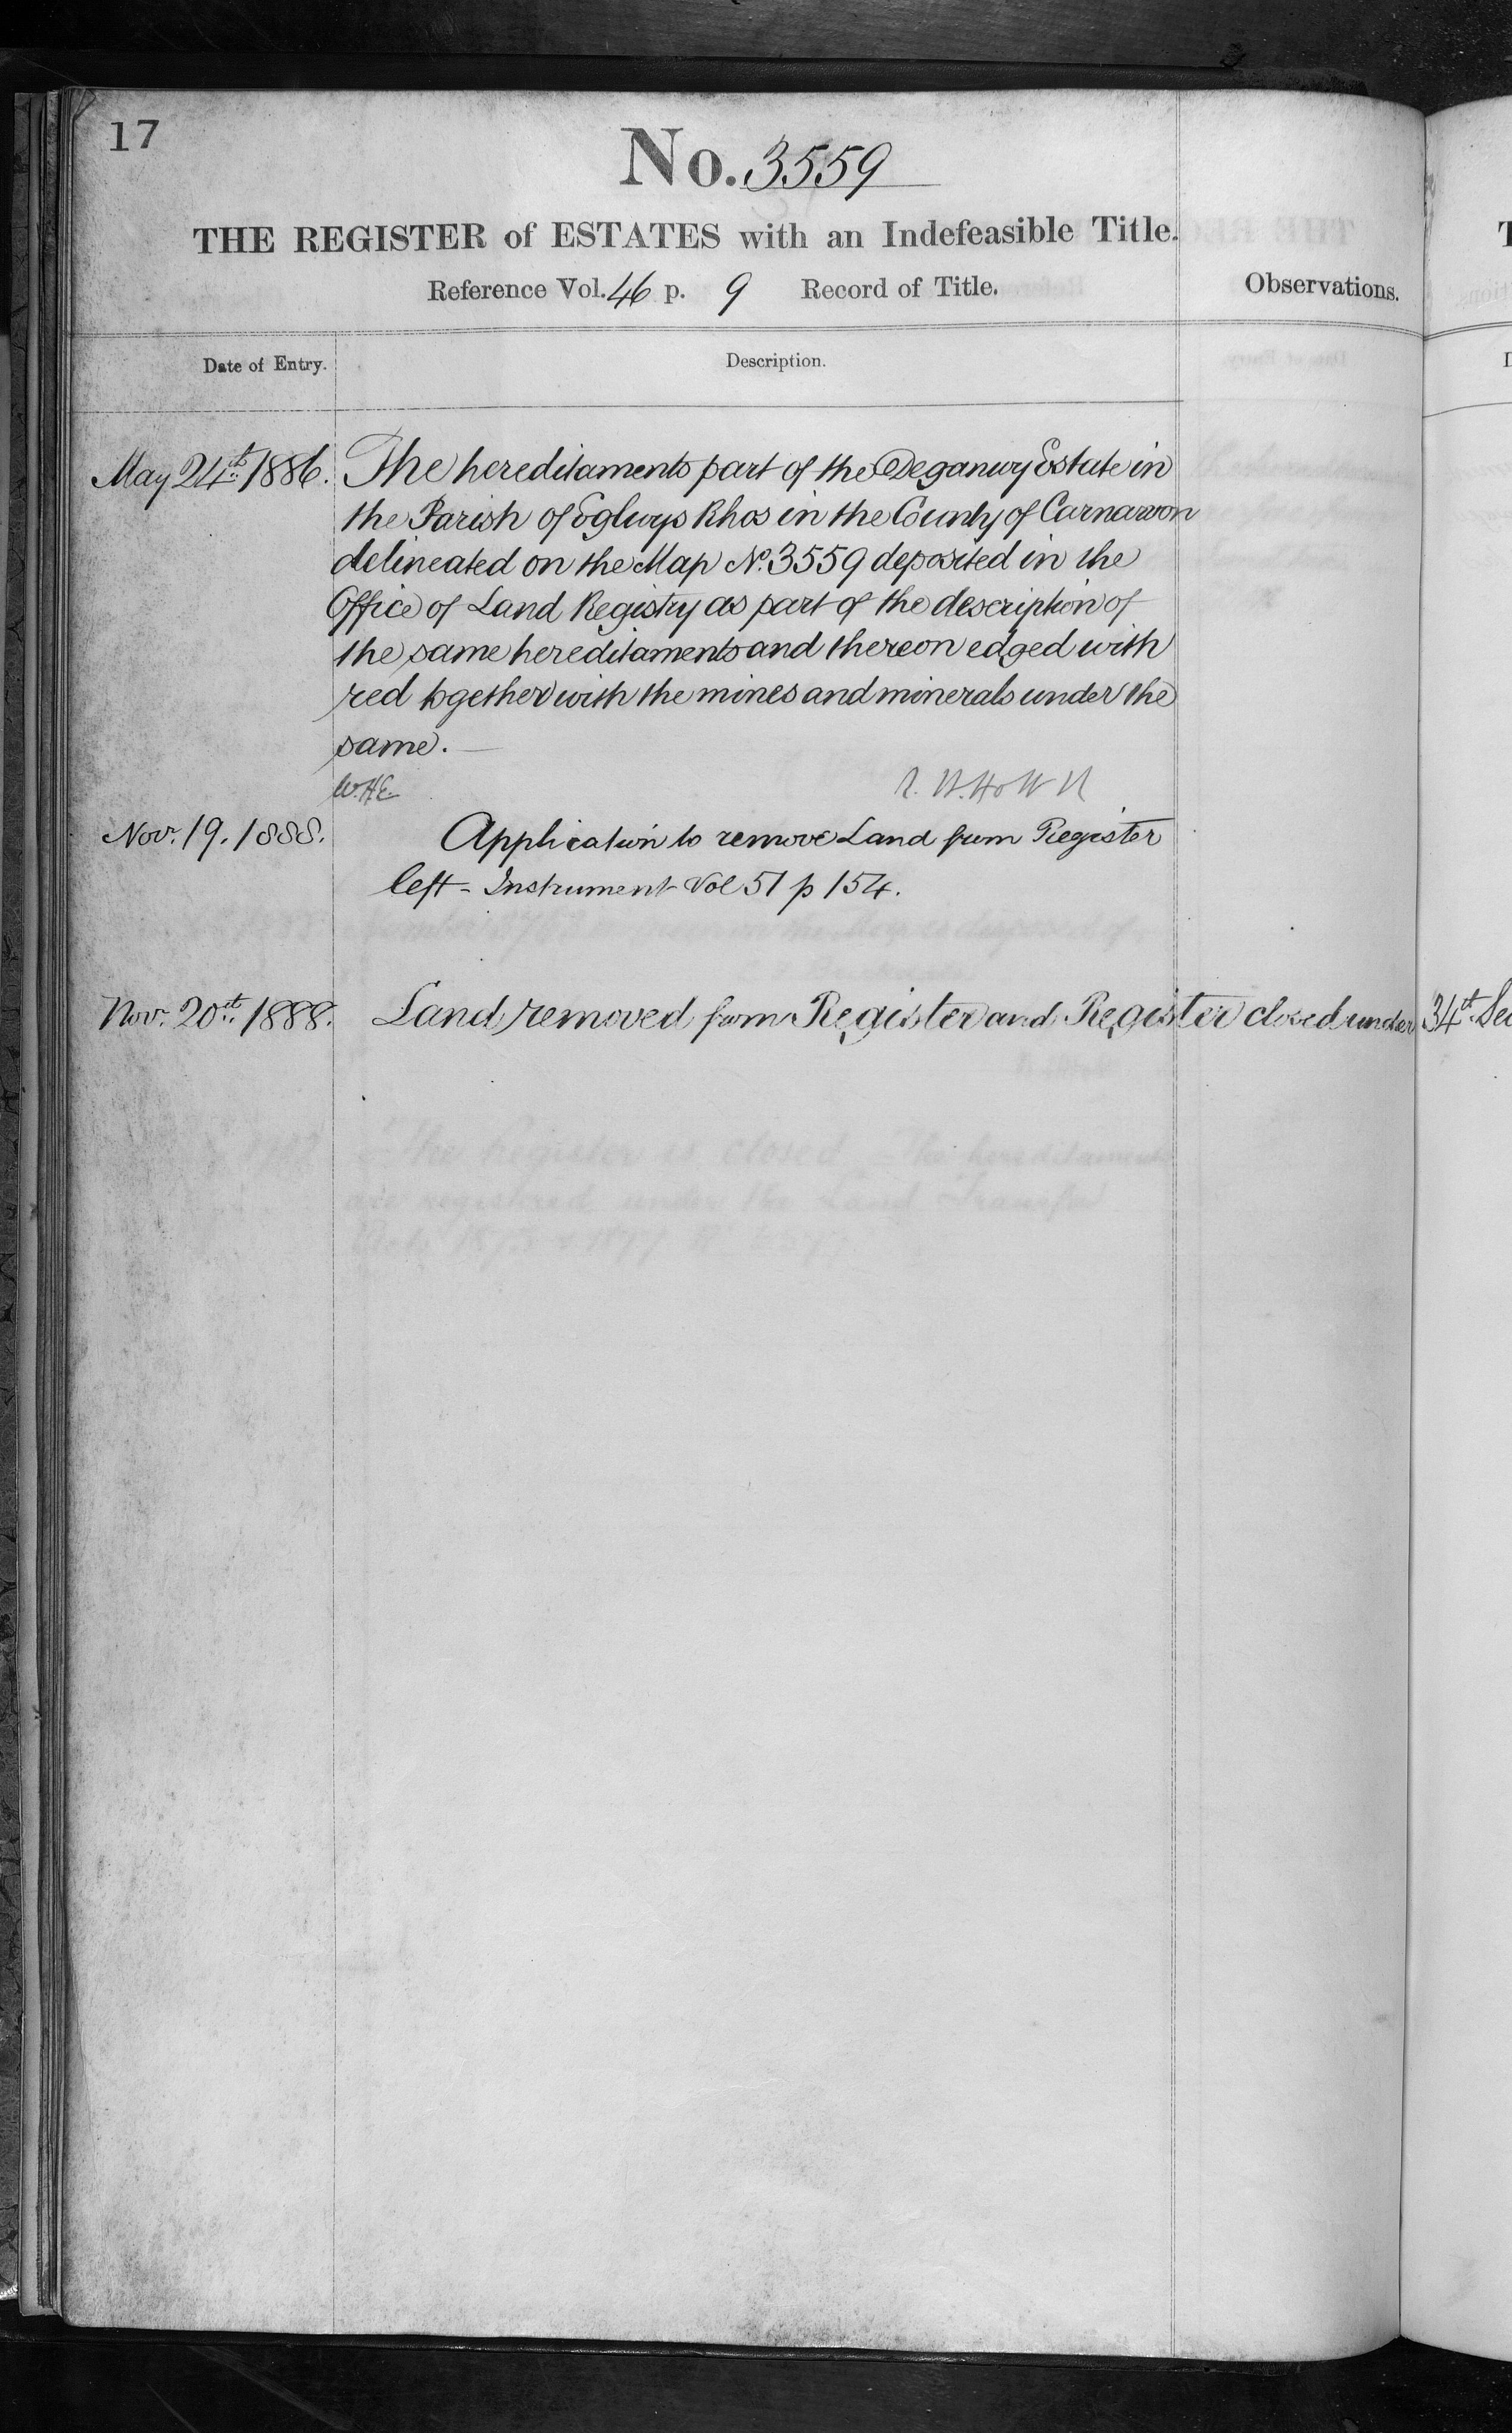 17
No. 3559
THE REGISTER of ESTATES with an Indefeasible Title.
Reference Vol. 46 p. 9 Record of Title.
Observations.
Date of Entry.
Description.
May 24th 1886. The hereditaments part of the Deganwy Estate in
the Parish of Eglwys Rhos in the County of Carnarvon
delineated on the Map No. 3559 deposited in the
Office of Land Registry as part of the description of
the same hereditaments and thereon edged with
red together with the mines and minerals under the
same.
W.H.E.
Nov. 19. 1888. Application to remove Land from Register
left - Instrument Vol 51 p 154.
Nov. 20th 1888. Land removed from Register and Register closed under 34th Sec
The Register is closed The hereditaments
are registered under the Land Transfer